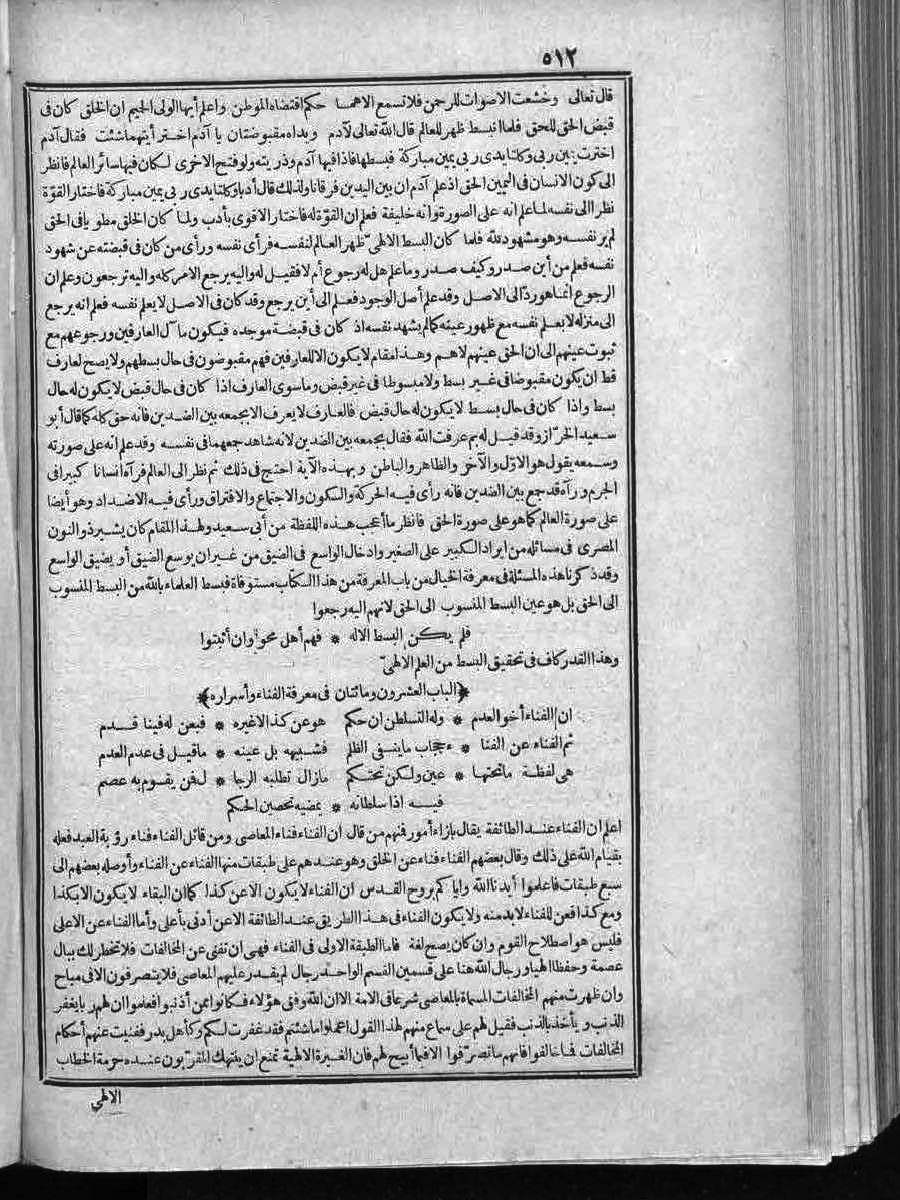 ٥١٢
قال تعالى وخشعت الاصوات للرحمن فلا تسمع الا همسا حكم اقتضاه الموطن واعلم أيها الولى الحميم ان الخلق كان فى
قبض الحق للحق فلما انبسط ظهر للعالم قال الله تعالى لآدم ويداه مقبوضتان يا آدم اختر أيتهما شئت فقال آدم
اخترت يمين ربى وكلتا يدى ربى يمين مباركة فبسطها فاذا فيها آدم وذريته ولو فتح الاخرى لكان فيها سائر العالم فانظر
الى كون الانسان فى اليمين الحق اذ علم آدم ان بين اليدين فرقانا ولذلك قال أدبا وكلتا يدى ربى يمين مباركة فاختار القوّة
نظرا الى نفسه لما علم انه على الصورة وانه خليفة فعلم ان القوّة له فاختار الاقوى بأدب ولما كان الخلق مطويا فى الحق
لم ير نفسه وهو مشهود لله فلما كان البسط الالهىّ ظهر العالم لنفسه فرأى نفسه ورأى من كان فى قبضته عن شهود
نفسه فعلم من أين صدر وكيف صدر وما علم هل له رجوع أم لا فقيل له واليه يرجع الامر كله واليه ترجعون وعلم ان
الرجوع انما هو ردّ الى الاصل وقد علم أصل الوجود فعلم الى أين يرجع وقد كان فى الاصل لا يعلم نفسه فعلم انه يرجع
الى منزله لا يعلم نفسه مع ظهور عينه كما لم يشهد نفسه اذ كان فى قبضة موجده فيكون ماآل العارفين ورجوعهم مع
ثبوت عينهم الى ان الحق عينهم لاهم وهذا مقام لا يكون الا للعارفين فهم مقبوضون فى حال بسطهم ولا يصح لعارف
قط ان يكون مقبوضا فى غير بسط ولا مبسوطا فى غير قبض وما سوى العارف اذا كان فى حال قبض لا يكون له حال
بسط واذا كان فى حال بسط لا يكون له حال قبض فالعارف لا يعرف الا بجمعه بين الضدين فانه حق كله كما قال أبو
سعيد الخرّاز وقد قيل له بم عرفت الله فقال بجمعه بين الضدين لانه شاهد جمعهما فى نفسه وقد علم انه على صورته
وسمعه يقول هو الاوّل والآخر والظاهر والباطن وبهذه الآية احتج فى ذلك ثم نظر الى العالم فرآه انسانا كبيرا فى
الجرم ورآه قد جمع بين الضدين فانه رأى فيه الحركة والسكون والاجتماع والافتراق ورأى فيه الاضداد وهو أيضا
على صورة العالم كما هو على صورة الحق فانظر ما أعجب هذه اللفظة من أبى سعيد ولهذا المقام كان يشير ذو النون
المصرى فى مسائله من ايراد الكبير على الصغير وادخال الواسع فى الضيق من غير ان يوسع الضيق أو يضيق الواسع
وقد ذكرنا هذه المسئلة فى معرفة الخيال من باب المعرفة من هذا الكتاب مستوفاة فبسط العلماء بالله من البسط المنسوب
الى الحق بل هو عين البسط المنسوب الى الحق لانهم اليه رجعوا
فلم يكن البسط الا له * فهم أهل محو وان أثبتوا
وهذا القدر كاف فى تحقيق البسط من العلم الالهىّ
﴿الباب العشرون ومائتان فى معرفة الفناء وأسراره﴾
ان الفناء أخو العدم * وله التسلطن ان حكم هو عن كذا لا غيره * فبعن له فينا قدم
ثم الفناء عن الفنا * ء حجاب ما ينفى الظلم فشبيهه بل عينه * ما قيل فى عدم العدم
هى لفظة ما تحتها * عين ولكن تحتكم ما زال تطلبه الرجا * ل فمن يقوم به عصم
فيه اذا سلطانه * يمضيه تحصين الحكم
اعلم ان الفناء عند الطائفة يقال بازاء أمور فمنهم من قال ان الفناء فناء المعاصى ومن قائل الفناء فناء رؤية العبد فعله
بقيام الله على ذلك وقال بعضهم الفناء فناء عن الخلق وهو عندهم على طبقات منها الفناء عن الفناء وأوصله بعضهم الى
سبع طبقات فاعلموا أيدنا الله واياكم بروح القدس ان الفناء لا يكون الا عن كذا كما ان البقاء لا يكون الا بكذا
ومع كذا فعن للفناء لا بد منه ولا يكون الفناء فى هذا الطريق عند الطائفة الا عن أدنى بأعلى وأما الفناء عن الاعلى
فليس هو اصطلاح القوم وان كان يصح لغة فاما الطبقة الاولى فى الفناء فهى ان تفنى عن المخالفات فلا تخطر لك ببال
عصمة وحفظا الهيا ورجال الله هنا على قسمين القسم الواحد رجال لم يقدر عليهم المعاصى فلا يتصرفون الا فى مباح
وان ظهرت منهم المخالفات المسماة بالمعاصى شرعا فى الامة الا ان الله وفق هؤلاء فكانوا ممن أذنبوا فعلموا ان لهم ربا يغفر
الذنب ويأخذ بالذنب فقيل لهم على سماع منهم لهذا القول اعملوا ما شئتم فقد غفرت لكم وكأهل بدر ففنيت عنهم أحكام
المخالفات فما خالفوا فانهم ما تصرّفوا الا فيما أبيح لهم فان الغيرة الالهية تمنع ان ينتهك المقرّبون عنده حرمة الخطاب
الالهى